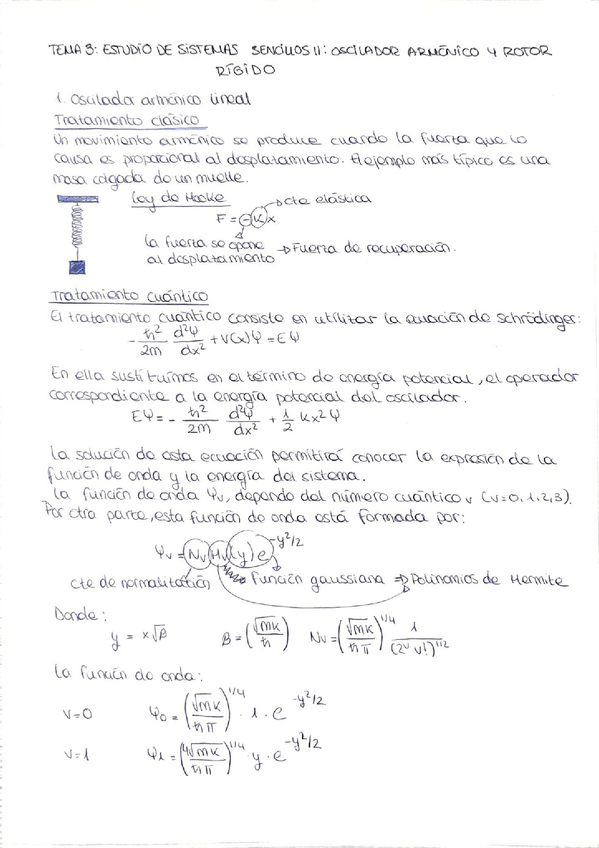 TEMA 3: ESTUDIO DE SISTEMAS SENCILLOS II: OSCILADOR ARMÓNICO Y ROTOR
RÍGIDO
1. Oscilador armónico lineal
Tratamiento clásico
Un movimiento armónico se produce cuando la fuerza que lo
causa es proporcional al desplazamiento. El ejemplo más típico es una
masa colgada de un muelle.
Ley de Hooke → cte elástica
F = -Kx
La fuerza se opone → Fuerza de recuperación.
al desplazamiento
Tratamiento cuántico
El tratamiento cuántico consiste en utilizar la ecuación de schrödinger:
-ħ²/2m d²Ψ/dx² + V(x)Ψ = EΨ
En ella sustituimos en el término de energía potencial, el operador
correspondiente a la energía potencial del oscilador.
EΨ = - ħ²/2m d²Ψ/dx² + 1/2 Kx²Ψ
La solución de esta ecuación permitirá conocer la expresión de la
función de onda y la energía del sistema.
La función de onda Ψv, depende del número cuántico v (v=0,1,2,3).
Por otra parte, esta función de onda está formada por:
Ψv = Nv Hv(y) e^(-y²/2)
cte de normalización Función gaussiana ⇒ Polinomios de Hermite
Donde:
y = x√β β = (√mK/ħ) Nv = (√mK/ħπ)^(1/4) 1/(2^v v!)^(1/2)
La función de onda:
v=0 Ψ₀ = (√mK/ħπ)^(1/4) · 1 · e^(-y²/2)
v=1 Ψ₁ = (4√mK/ħπ)^(1/4) · y · e^(-y²/2)